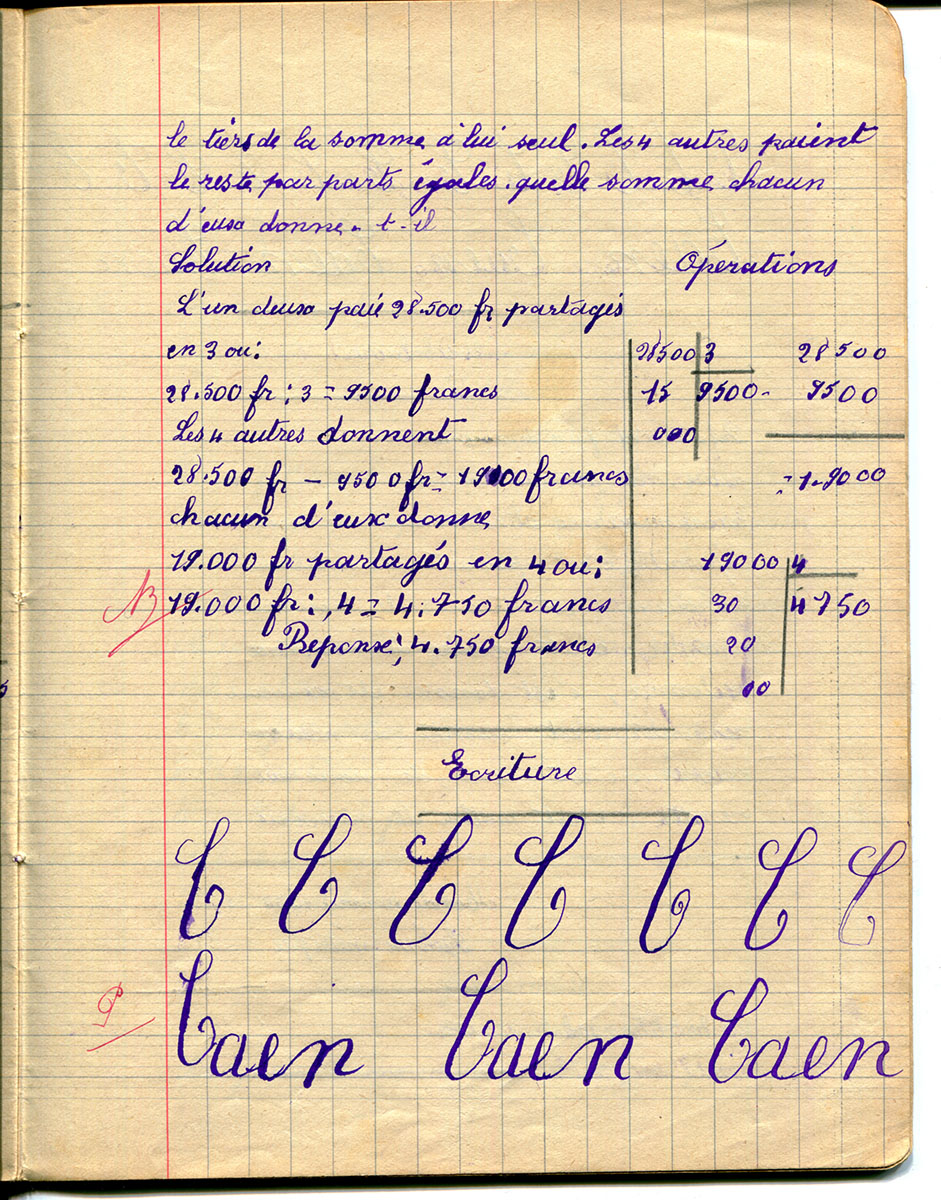 le tiers de la somme à lui seul. Les 4 autres paient
le reste par parts égales. quelle somme chacun
d'eux donne-t-il
Solution Opérations
L'un deux paie 28.500 fr partagés
en 3 ou: 28500 3 28500
28.500 fr : 3 = 9500 francs 15 9500 - 9500
Les 4 autres donnent 000
28.500 fr - 9500 fr = 19000 francs = 1.9000
chacun d'eux donne
19.000 fr partagés en 4 ou: 19000 4
19.000 fr : 4 = 4.750 francs 30 4750
Réponse: 4.750 francs 20
00
Ecriture
C C C C C C C
Caen Caen Caen